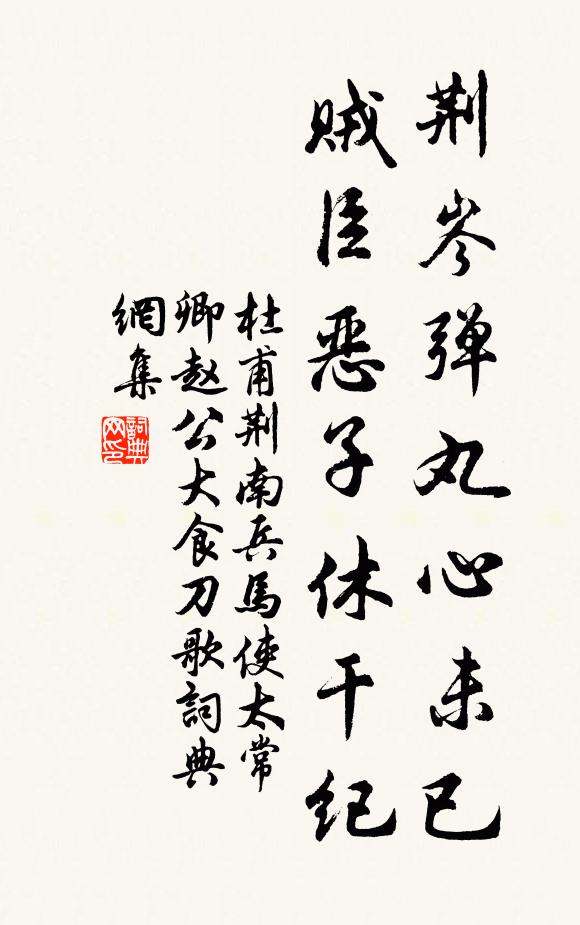 荆岑弹丸心未已
贼臣恶子休干纪
杜甫荆南兵馬使太常
卿赵公大食刀歌詞典
網集
詞典
网印